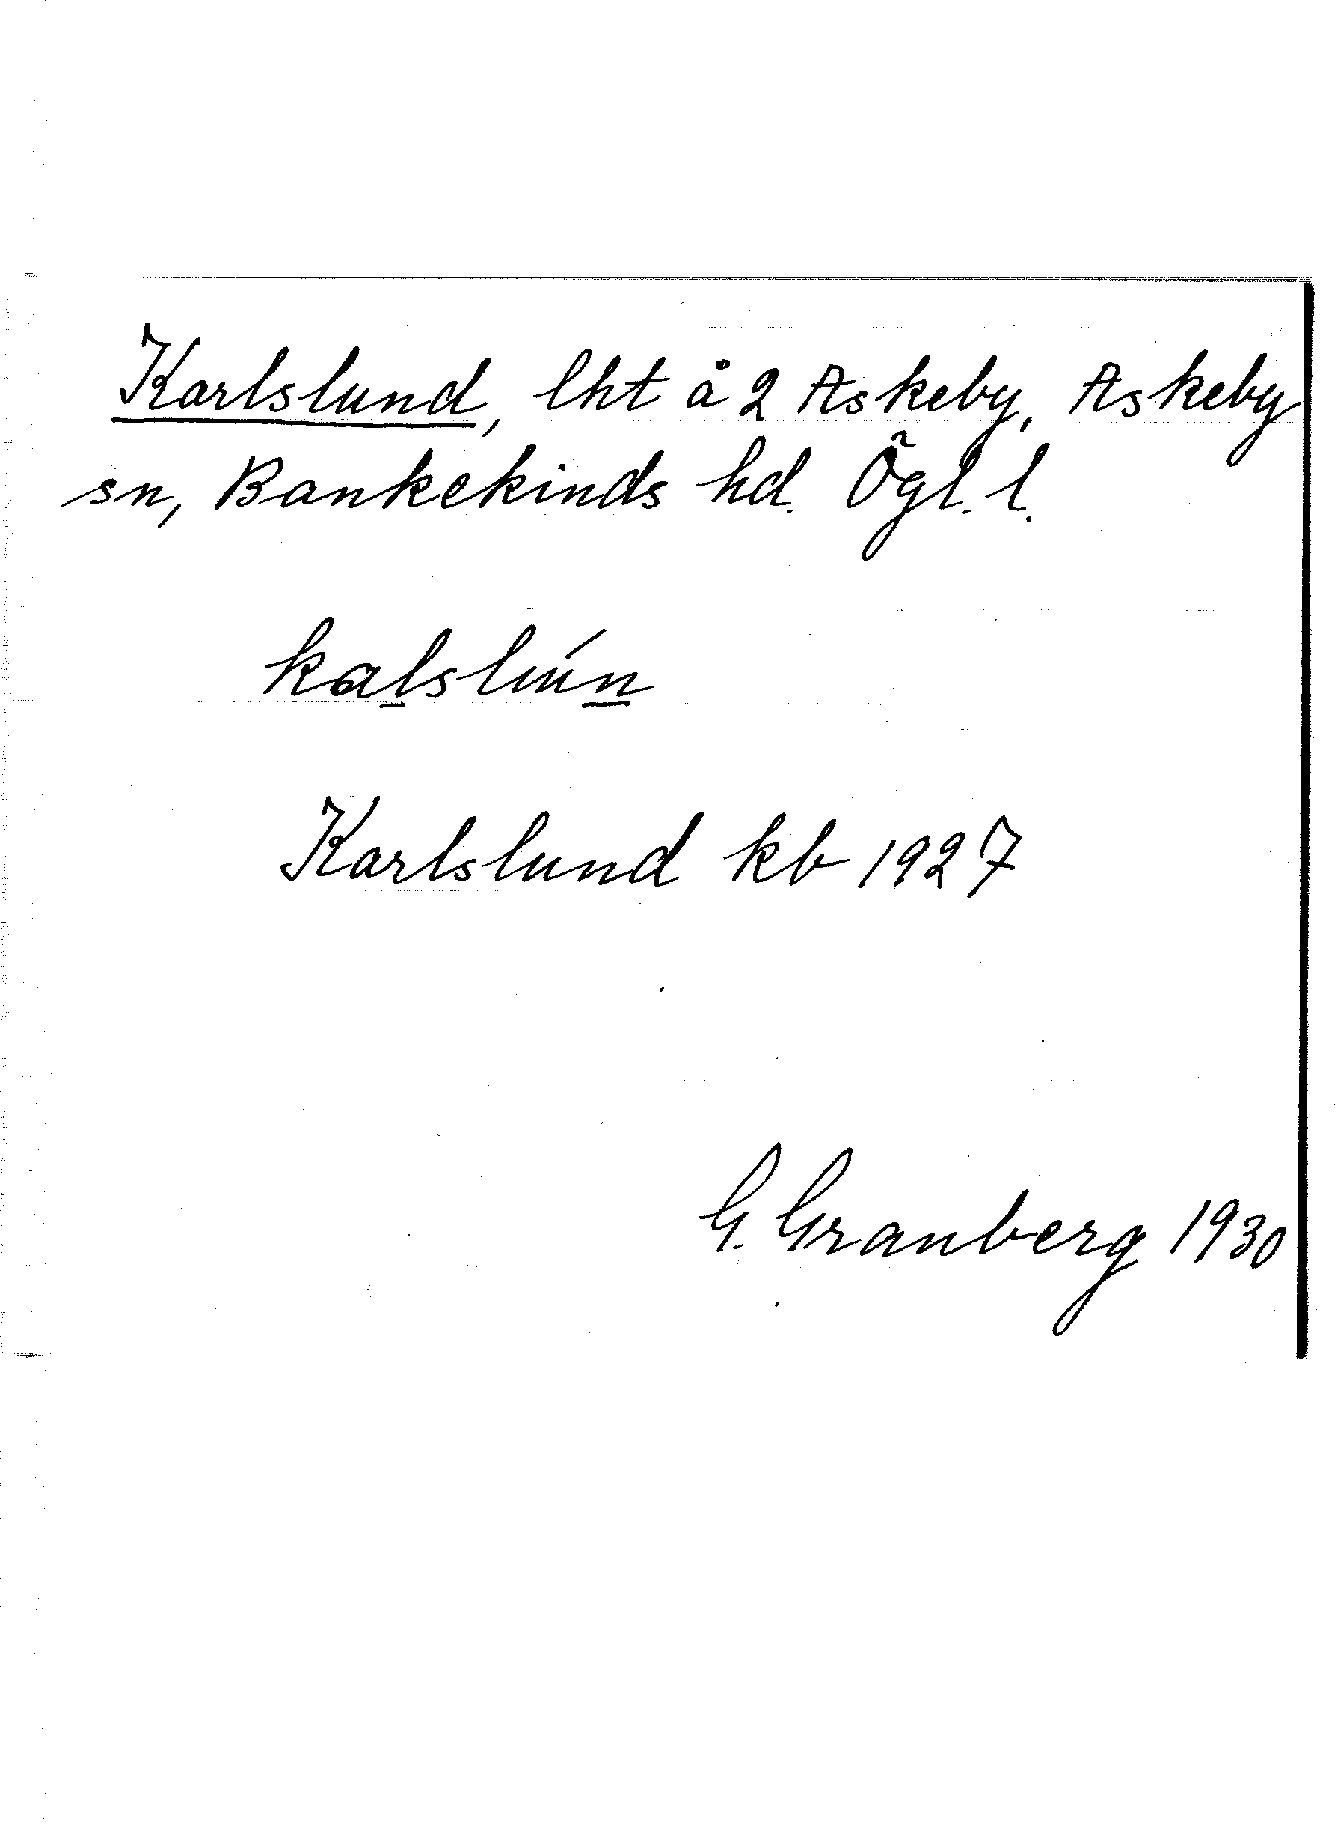 Karlslund, lht å 2 Askeby, Askeby
sn, Bankekinds hd. Ögl. l.
kalslún
Karlslund kb 1927
G. Granberg 1930